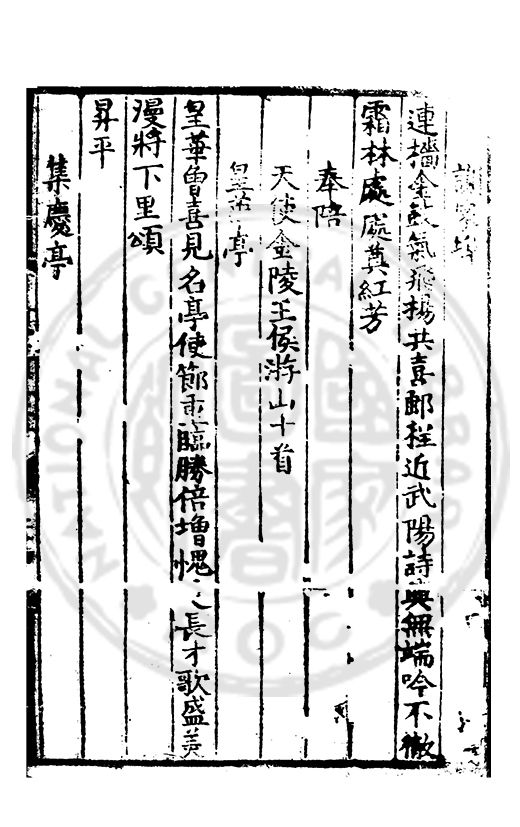 連檣金鼓氣飛揚共喜郵程近武陽詩興無端吟不徹
霜林處處奠紅芳
奉陪
天使金陵王侯游山十首
皇華亭
皇華曾喜見名亭使節重臨勝倍增愧乏長才歌盛美
漫將下里頌
昇平
集慶亭